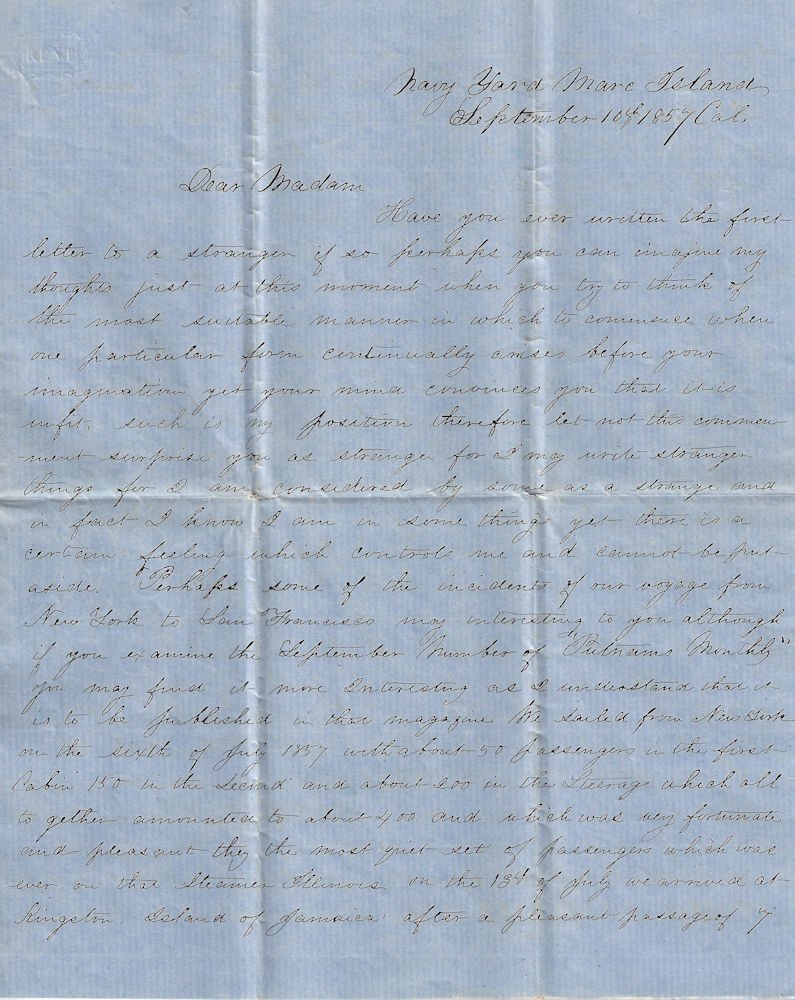 KENT
Navy Yard Mare Island
September 10th 1857 Cal.
Dear Madam
Have you ever written the first
letter to a stranger if so perhaps you can imagine my
thoughts just at this moment when you try to think of
the most suitable manner in which to commence, when
one particular form continually arises before your
imagination yet your mind convinces you that it is
unfit, such is my position therefore let not this commen-
ment surprise you as strange for I may write stranger
things for I am considered by some as a strange and
in fact I know I am in some things yet there is a
certain feeling which controls me and cannot be put
aside. Perhaps some of the incidents of our voyage from
New York to San Francisco may interesting to you although
if you examine the September Number of "Putnams Monthly"
you may find it more Interesting as I understand that it
is to be published in that magazine. We sailed from New York
on the sixth of July 1857 with about 50 passengers in the first
Cabin 150 in the Second and about 200 in the Steerage which all
to gether amounted to about 400 and which was very fortunate
and pleasant they the most quiet set of passengers which was
ever on that Steamer Illinois. on the 13th of July we arrived at
Kingston Island of Jamaica after a pleasant passage of 7